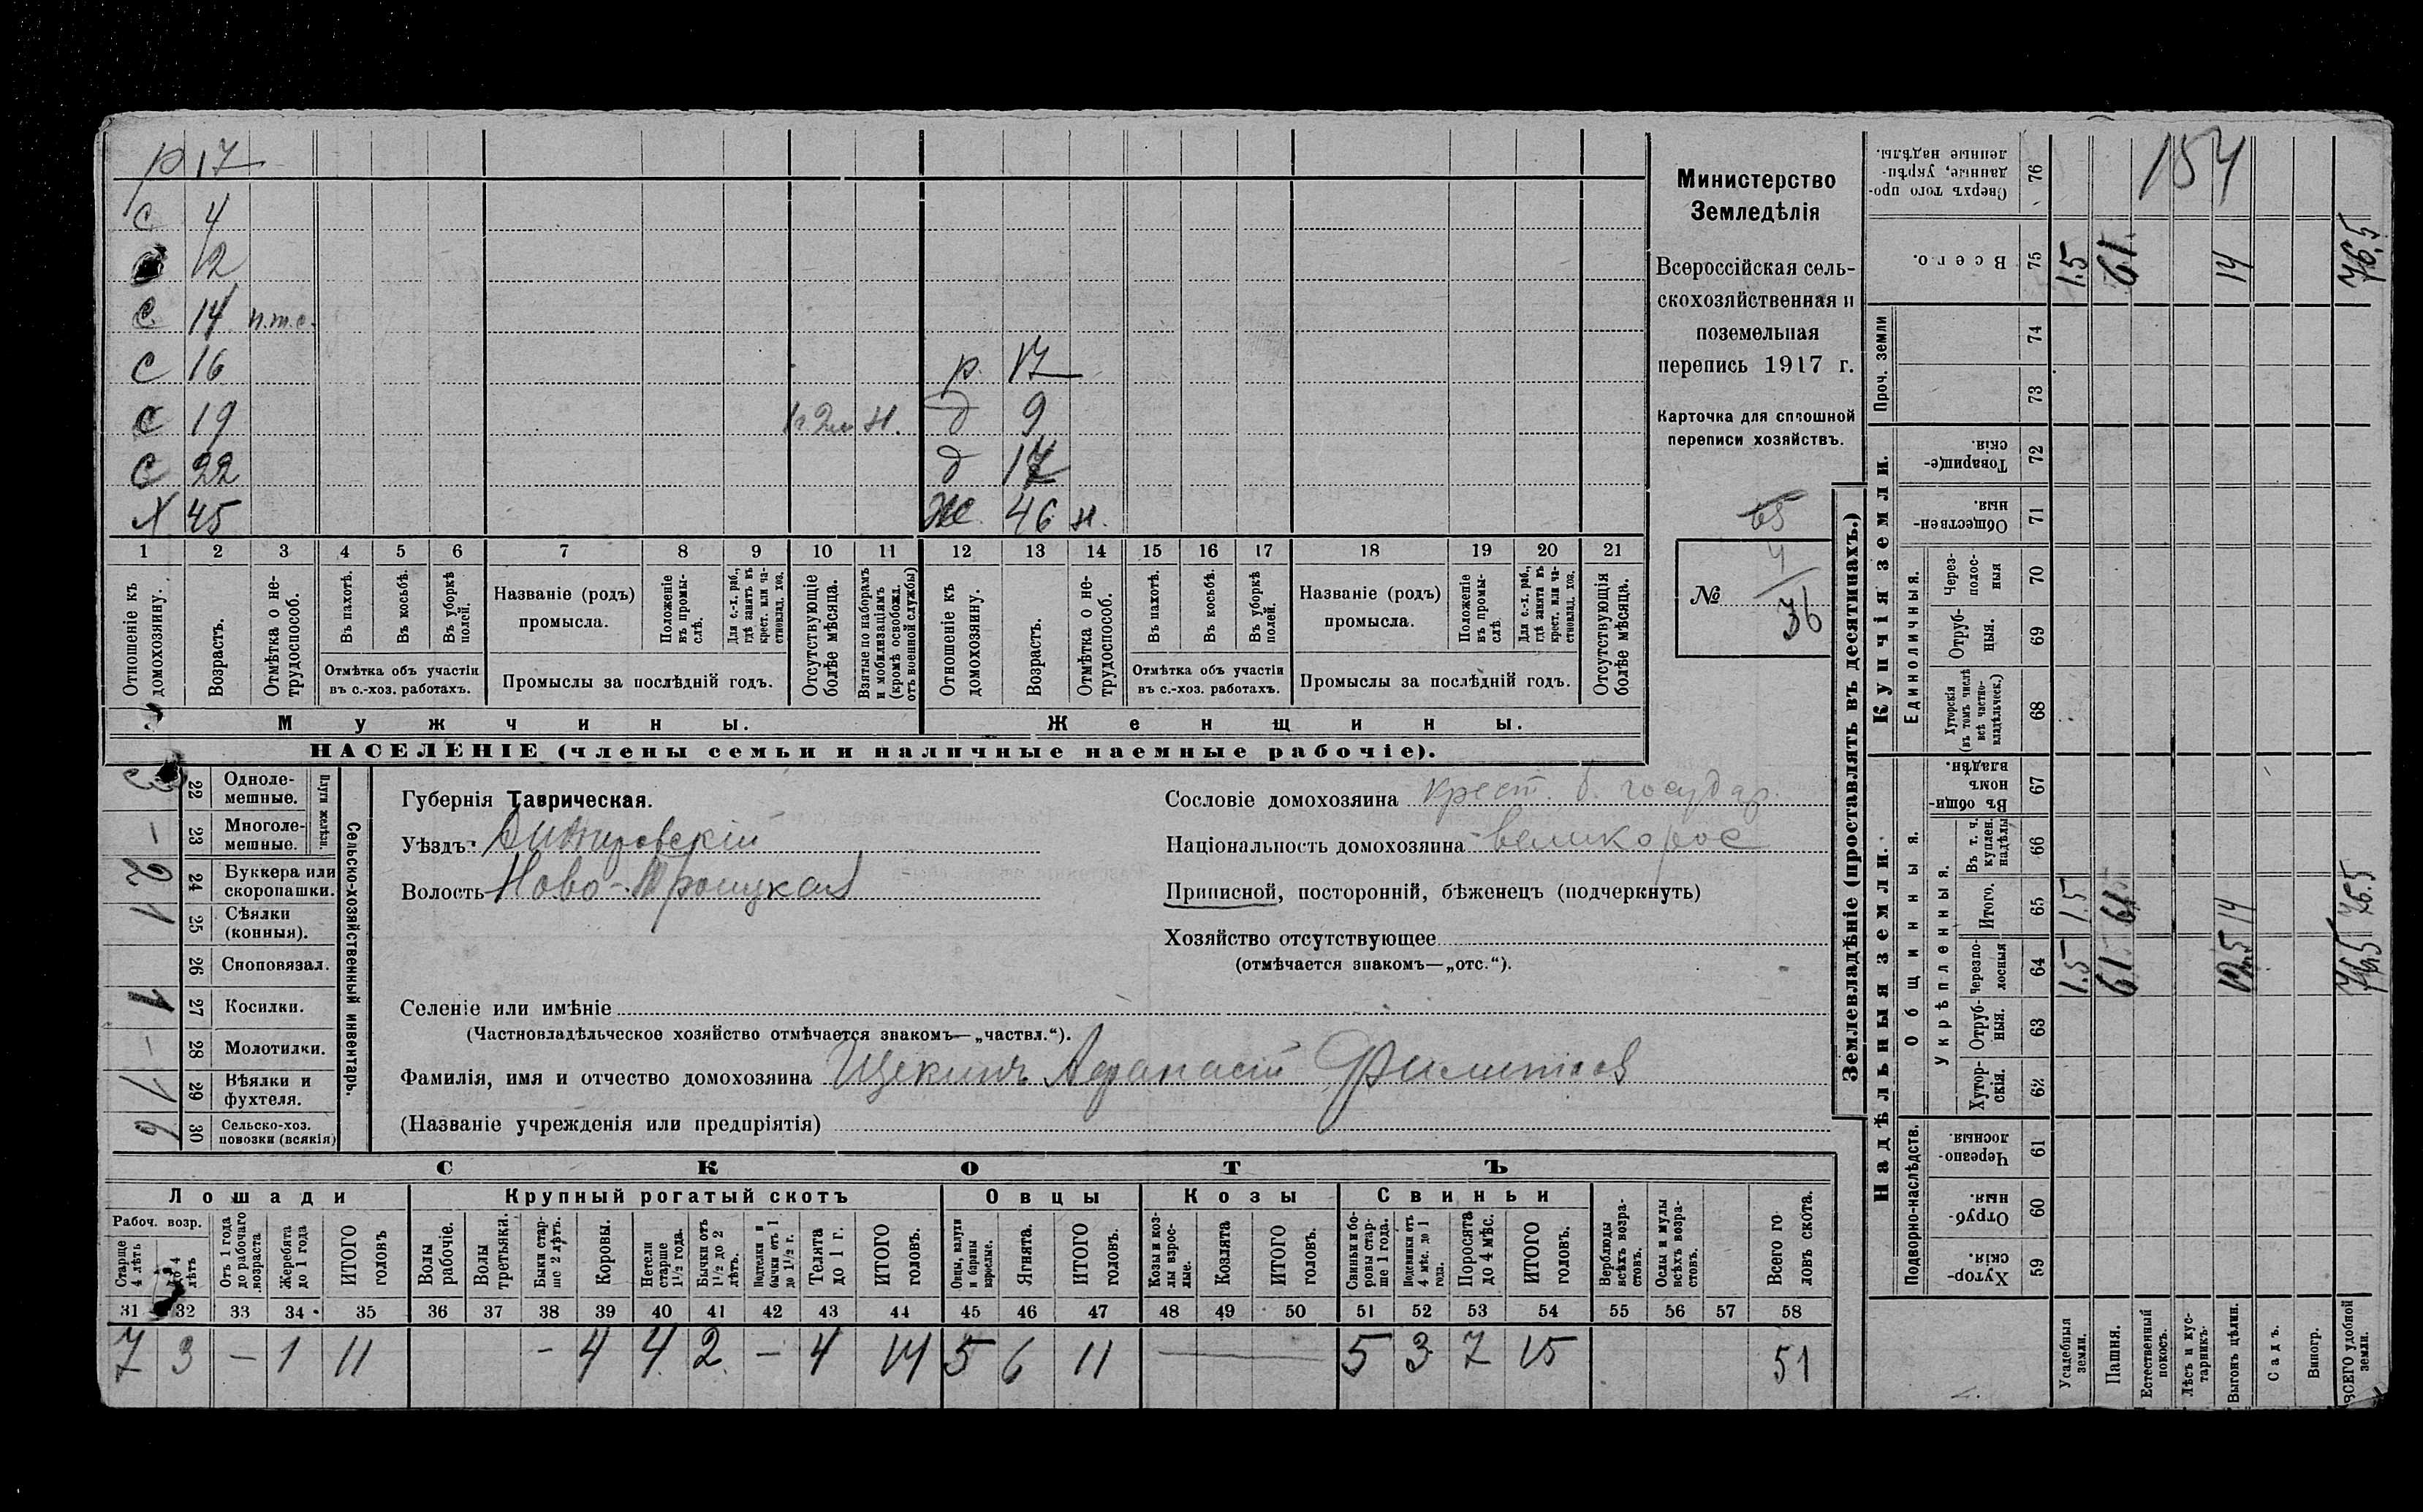 р 17
с 4
с 12
с 14 н.т.с.
с 16 р. 17
с 19 н. д 9
с 22 д 17
х 45 Ж. 46 н.
1 2 3 4 5 6 7 8 9 10 11 12 13 14 15 16 17 18 19 20 21
Отношеніе къ домохозяину.
Возрастъ.
Отмѣтка о нетрудоспособ.
Въ пахотѣ.
Въ косьбѣ.
Въ уборкѣ полей.
Отмѣтка объ участіи въ с.-хоз. работахъ.
Названіе (родъ) промысла.
Положеніе въ промыслѣ.
Для с.-х. раб., гдѣ занятъ въ крест. или частновлад. хоз.
Промыслы за послѣдній годъ.
Отсутствующіе болѣе мѣсяца.
Взятые по наборамъ и мобилизаціямъ (кромѣ освобожд. отъ военной службы)
Отношеніе къ домохозяину.
Возрастъ.
Отмѣтка о нетрудоспособ.
Въ пахотѣ.
Въ косьбѣ.
Въ уборкѣ полей.
Отмѣтка объ участіи въ с.-хоз. работахъ.
Названіе (родъ) промысла.
Положеніе въ промыслѣ.
Для с.-х. раб., гдѣ занята въ крест. или частновлад. хоз.
Промыслы за послѣдній годъ.
Отсутствующія болѣе мѣсяца.
Мужчины. Женщины.
НАСЕЛЕНІЕ (члены семьи и наличные наемные рабочіе).
Министерство
Земледѣлія
Всероссійская сель-
скохозяйственная и
поземельная
перепись 1917 г.
Карточка для сплошной
переписи хозяйствъ.
65
№ 4
36
Сельско-хозяйственный инвентарь.
Плуги желѣзн.
22 Одноле-мешные. 3
23 Многоле-мешные. –
24 Буккера или скоропашки. 2
25 Сѣялки (конныя). 1
26 Сноповязал.
27 Косилки. 1
28 Молотилки. –
29 Вѣялки и фухтеля. 1
30 Сельско-хоз. повозки (всякія) 6
Губернія Таврическая.
Уѣздъ Днѣпровскій
Волость Ново-Троицкая
Сословіе домохозяина крест. б. государ.
Національность домохозяина великорос
Приписной, посторонній, бѣженецъ (подчеркнуть)
Хозяйство отсутствующее
(отмѣчается знакомъ—„отс.“).
Селеніе или имѣніе
(Частновладѣльческое хозяйство отмѣчается знакомъ—„частвл.“).
Фамилія, имя и отчество домохозяина Щекинъ Афанасій Филиповъ
(Названіе учрежденія или предпріятія)
СКОТЪ
Лошади Крупный рогатый скотъ Овцы Козы Свиньи
Рабоч. возр.
Старше 4 лѣтъ
До 4 лѣтъ
Отъ 1 года до рабочаго возраста
Жеребята до 1 года
ИТОГО головъ
Волы рабочіе.
Волы третьяки.
Быки старше 2 лѣтъ.
Коровы.
Нетели старше 1½ года.
Бычки отъ 1½ до 2 лѣтъ.
Подтелки и бычки отъ 1 до 1½ г.
Телята до 1 г.
ИТОГО головъ.
Овцы, валухи и бараны взрослые.
Ягнята.
ИТОГО головъ.
Козы и козлы взрослые.
Козлята
ИТОГО головъ.
Свиньи и боровы старше 1 года.
Подсвинки отъ 4 мѣс. до 1 года.
Поросята до 4 мѣс.
ИТОГО головъ.
Верблюды всѣхъ возрастовъ.
Ослы и мулы всѣхъ возрастовъ.
Всего головъ скота.
31 32 33 34 35 36 37 38 39 40 41 42 43 44 45 46 47 48 49 50 51 52 53 54 55 56 57 58
7 3 – 1 11 – 4 4 2 – 4 14 5 6 11 — 5 3 7 15 51
Землевладѣніе (проставлять въ десятинахъ.)
Надѣльныя земли. Купчія земли. Проч. земли
Подворно-наслѣдств.
Общинныя.
Укрѣпленныя.
Единоличныя.
59 Хуторскія.
60 Отрубныя.
61 Черезполосныя.
62 Хуторскія.
63 Отрубныя.
64 Черезполосныя
65 Итого.
66 Въ т. ч. куплен. надѣлы
67 Въ общинномъ владѣн.
68 Хуторскія (въ томъ числѣ всѣ частновладѣльческ.)
69 Отрубныя.
70 Черезполосныя
71 Общественныя.
72 Товарищескія.
73
74
75 Всего.
76 Сверхъ того проданные, укрѣпленные надѣлы.
154
Усадебныя земли. 1.5 1.5 1.5
Пашня. 61 61 61
Естественный покосъ.
Лѣсъ и кустарникъ.
Выгонъ цѣлин. 14 14
Садъ.
Виногр.
ВСЕГО удобной земли. 76.5 76.5 76.5